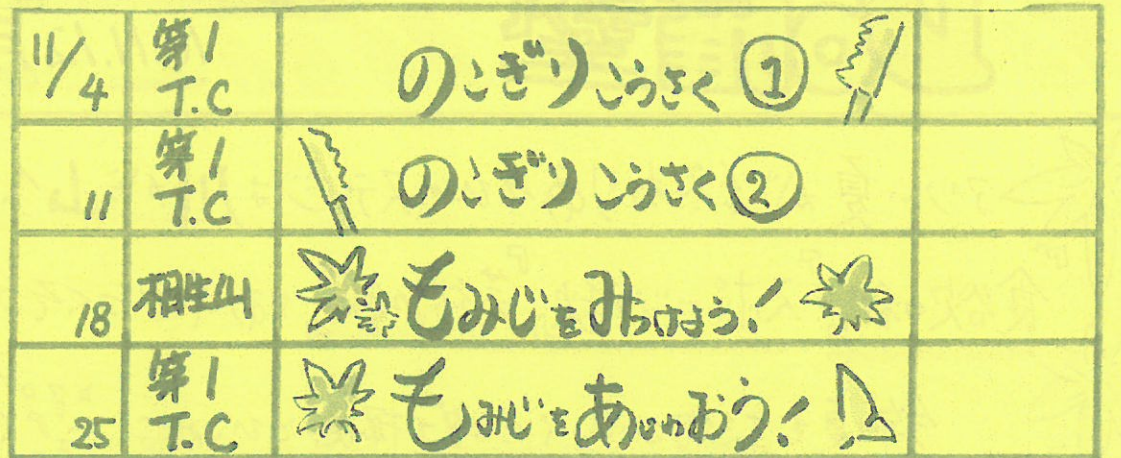 11/4 第1 T.C のこぎりこうさく①
11 第1 T.C のこぎりこうさく②
18 相生山 もみじをみつけよう!
25 第1 T.C もみじをあじわおう!